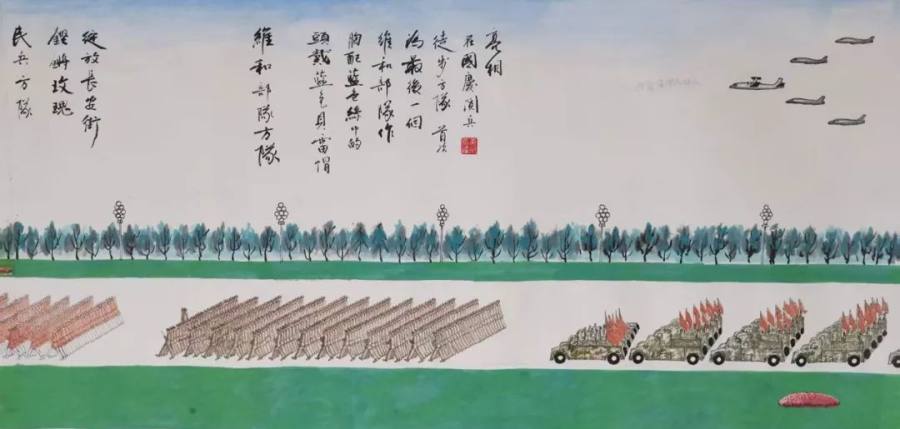 民兵方隊
鏗鏘玫瑰
綻放長安街
維和部隊方隊
頭戴藍色貝雷帽
胸配藍色絲巾的
維和部隊作
為最後一個
徒步方隊 首次
在國慶閱兵
亮相